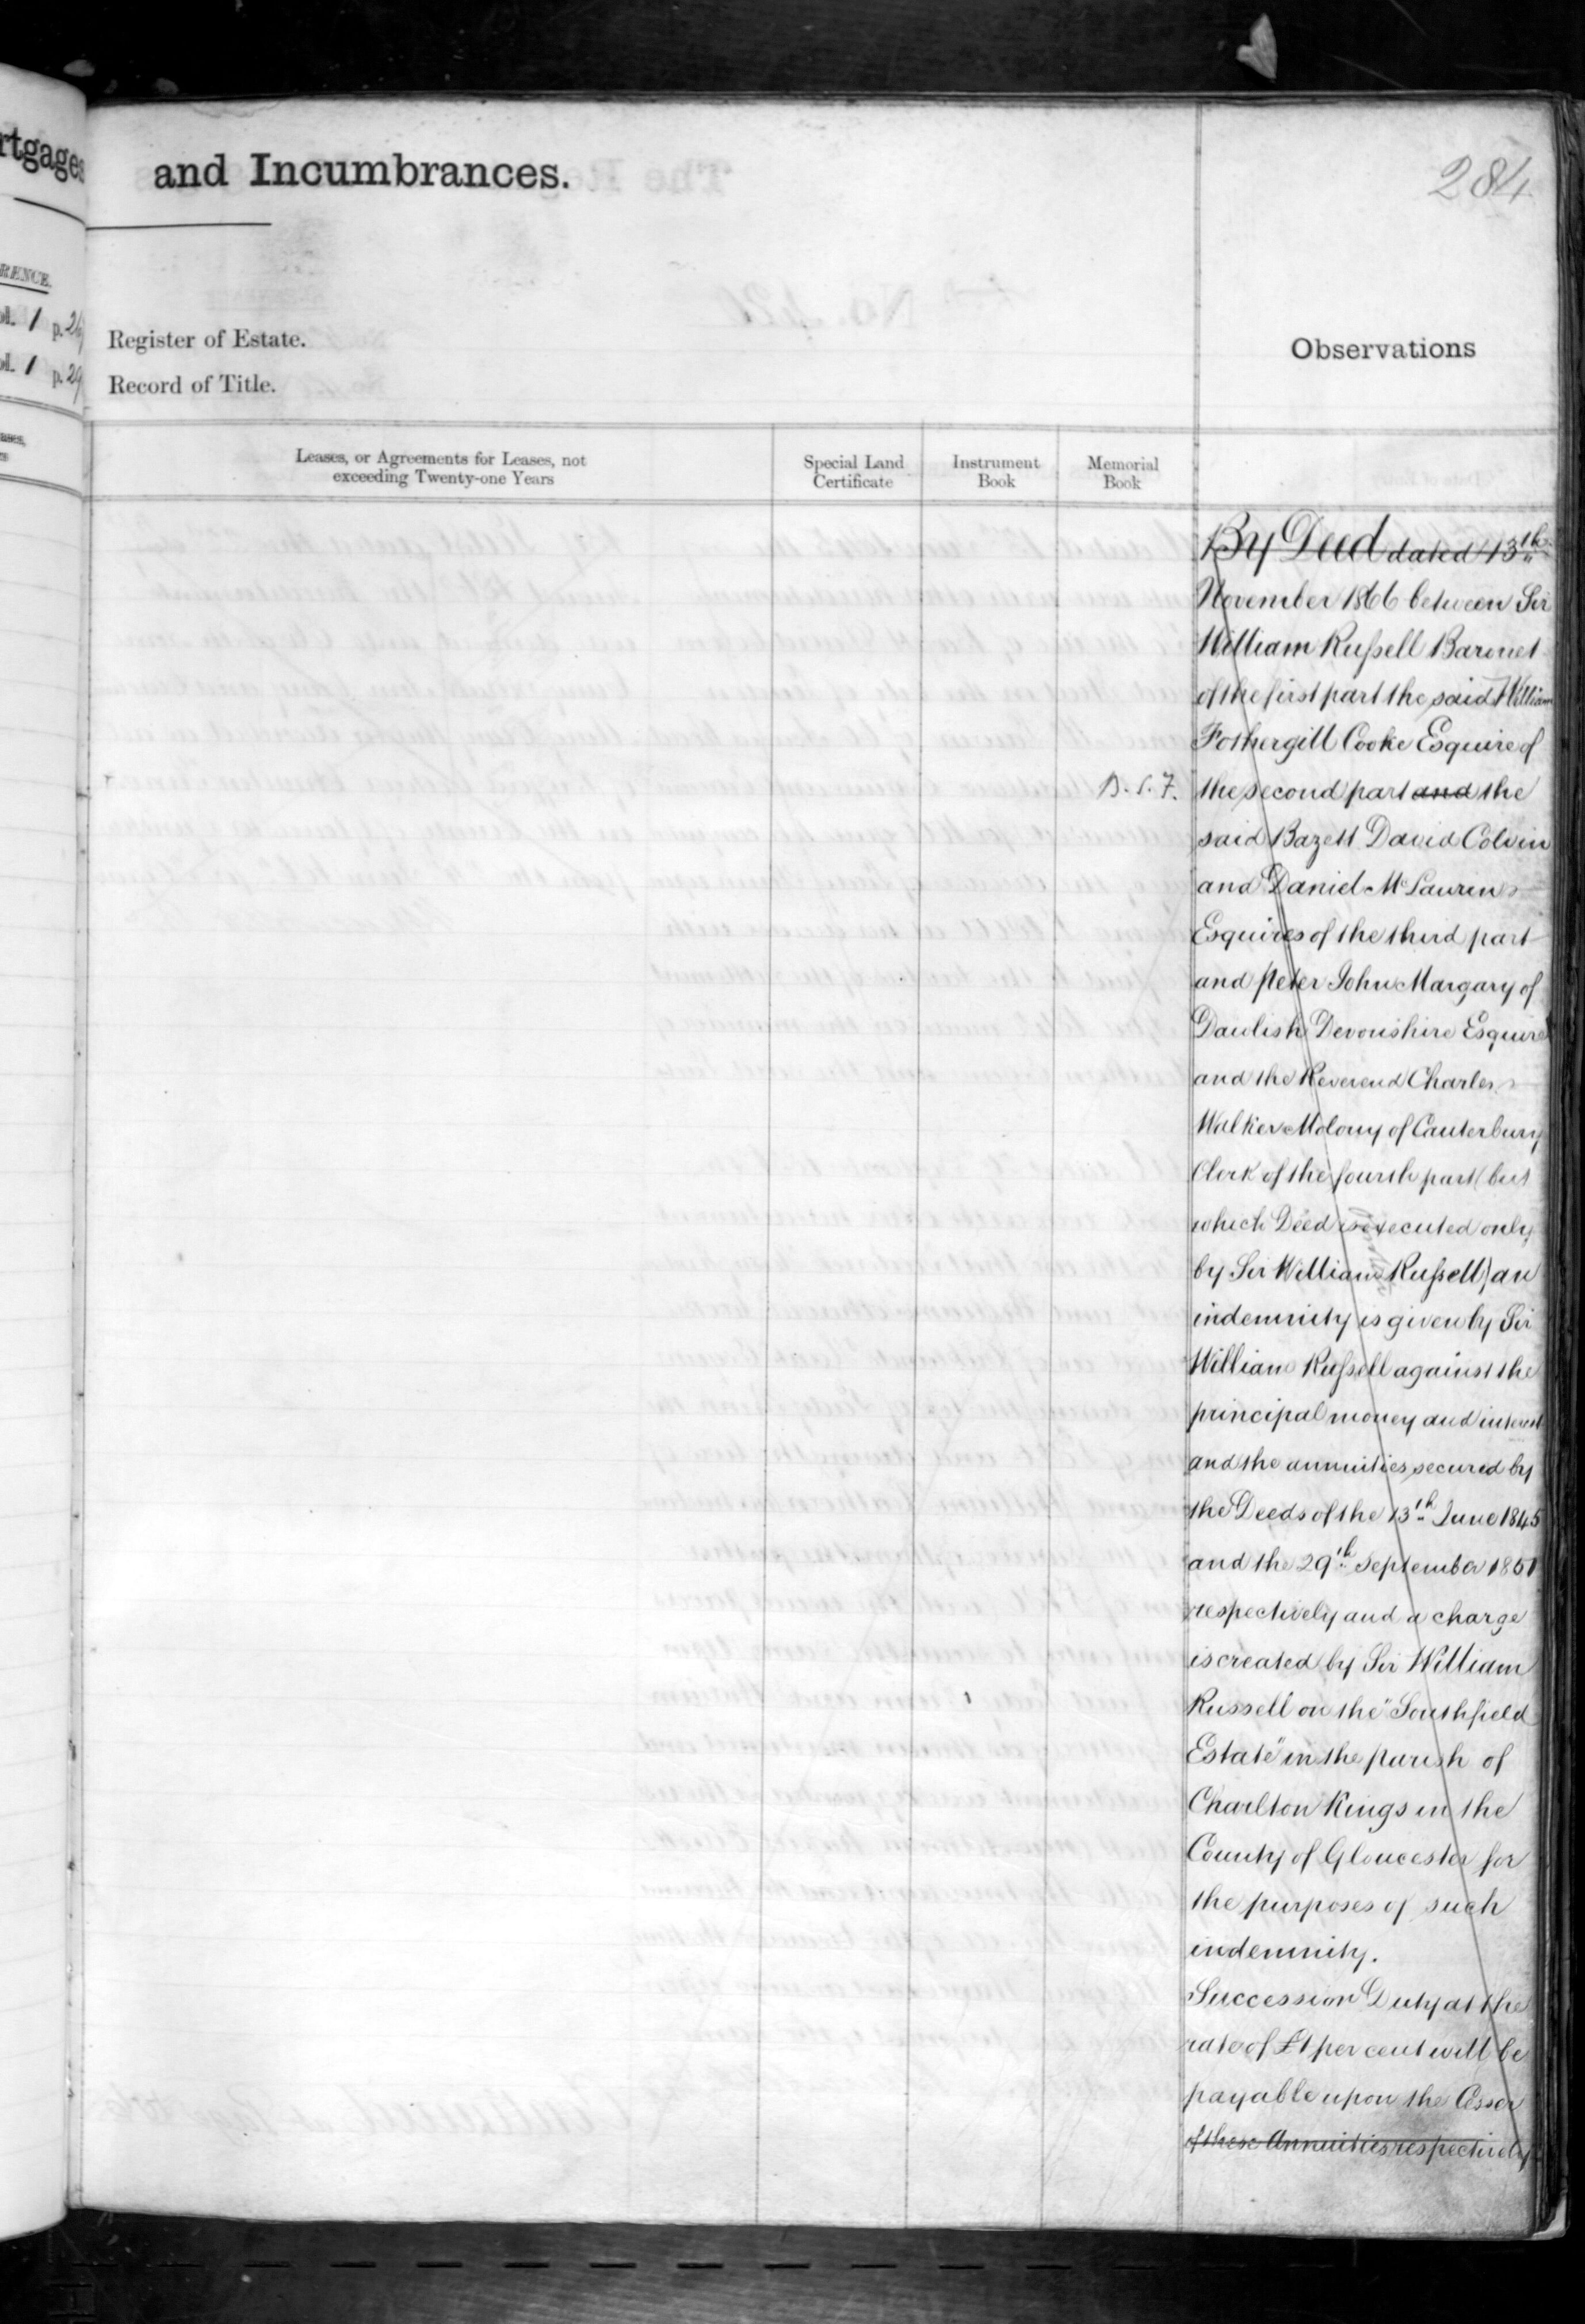 rtgages
and Incumbrances.
284
RENCE.
ol. 1 p. 2
Register of Estate.
ol. 1 p. 29
Record of Title.
Observations
ases,
Leases, or Agreements for Leases, not
exceeding Twenty-one Years
Special Land
Certificate
Instrument
Book
Memorial
Book
By Deed dated 13th
November 1866 between Sir
William Russell Baronet
of the first part the said William
Fothergill Cooke Esquire of
the second part and the
said Bazett David Colvin
and Daniel McLaurin
Esquires of the third part
and Peter John Margary of
Dawlish Devonshire Esquire
and the Reverend Charles
Walker Molony of Canterbury
Clerk of the fourth part (but
which Deed is executed only
by Sir William Russell) an
indemnity is given by Sir
William Russell against the
principal money and interest
and the annuities secured by
the Deeds of the 13th June 1845
and the 29th September 1851
respectively and a charge
is created by Sir William
Russell on the "Southfield
Estate" in the parish of
Charlton Kings in the
County of Gloucester for
the purposes of such
indemnity.
Succession Duty at the
rate of £1 per cent will be
payable upon the Cesser
of these Annuities respectively